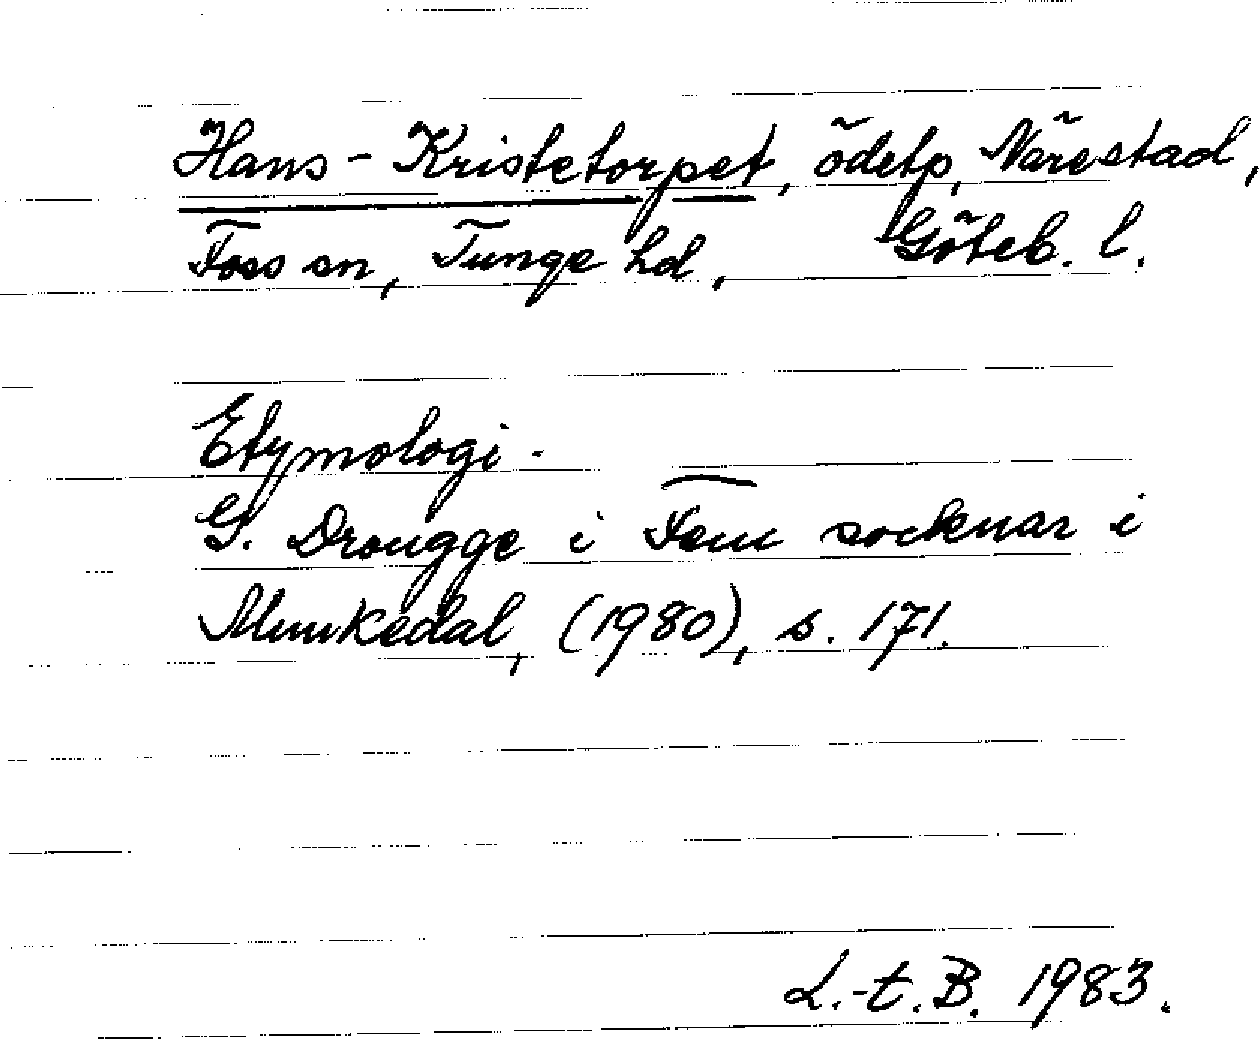 Hans-Kristetorpet, ödetp, Närestad,
Foss sn, Tunge hd, Göteb. l.
Etymologi.
G. Drougge i Fem socknar i
Munkedal, (1980), s. 171.
L.-t. B. 1983.